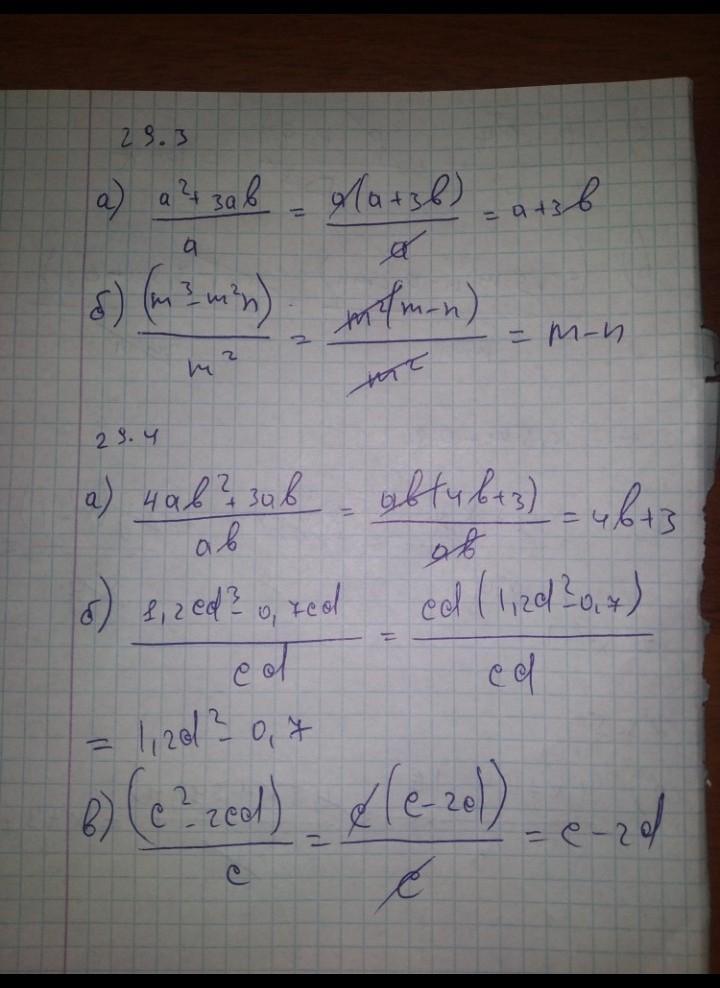 29.3
а) (a²+3ab)/a = a(a+3b)/a = a+3b
б) (m³-m²n)/m² = m²(m-n)/m² = m-n
29.4
а) (4ab²+3ab)/ab = ab(4b+3)/ab = 4b+3
б) (1,2cd³-0,7cd)/cd = cd(1,2d²-0,7)/cd
= 1,2d²-0,7
в) (c²-2cd)/c = c(c-2d)/c = c-2d